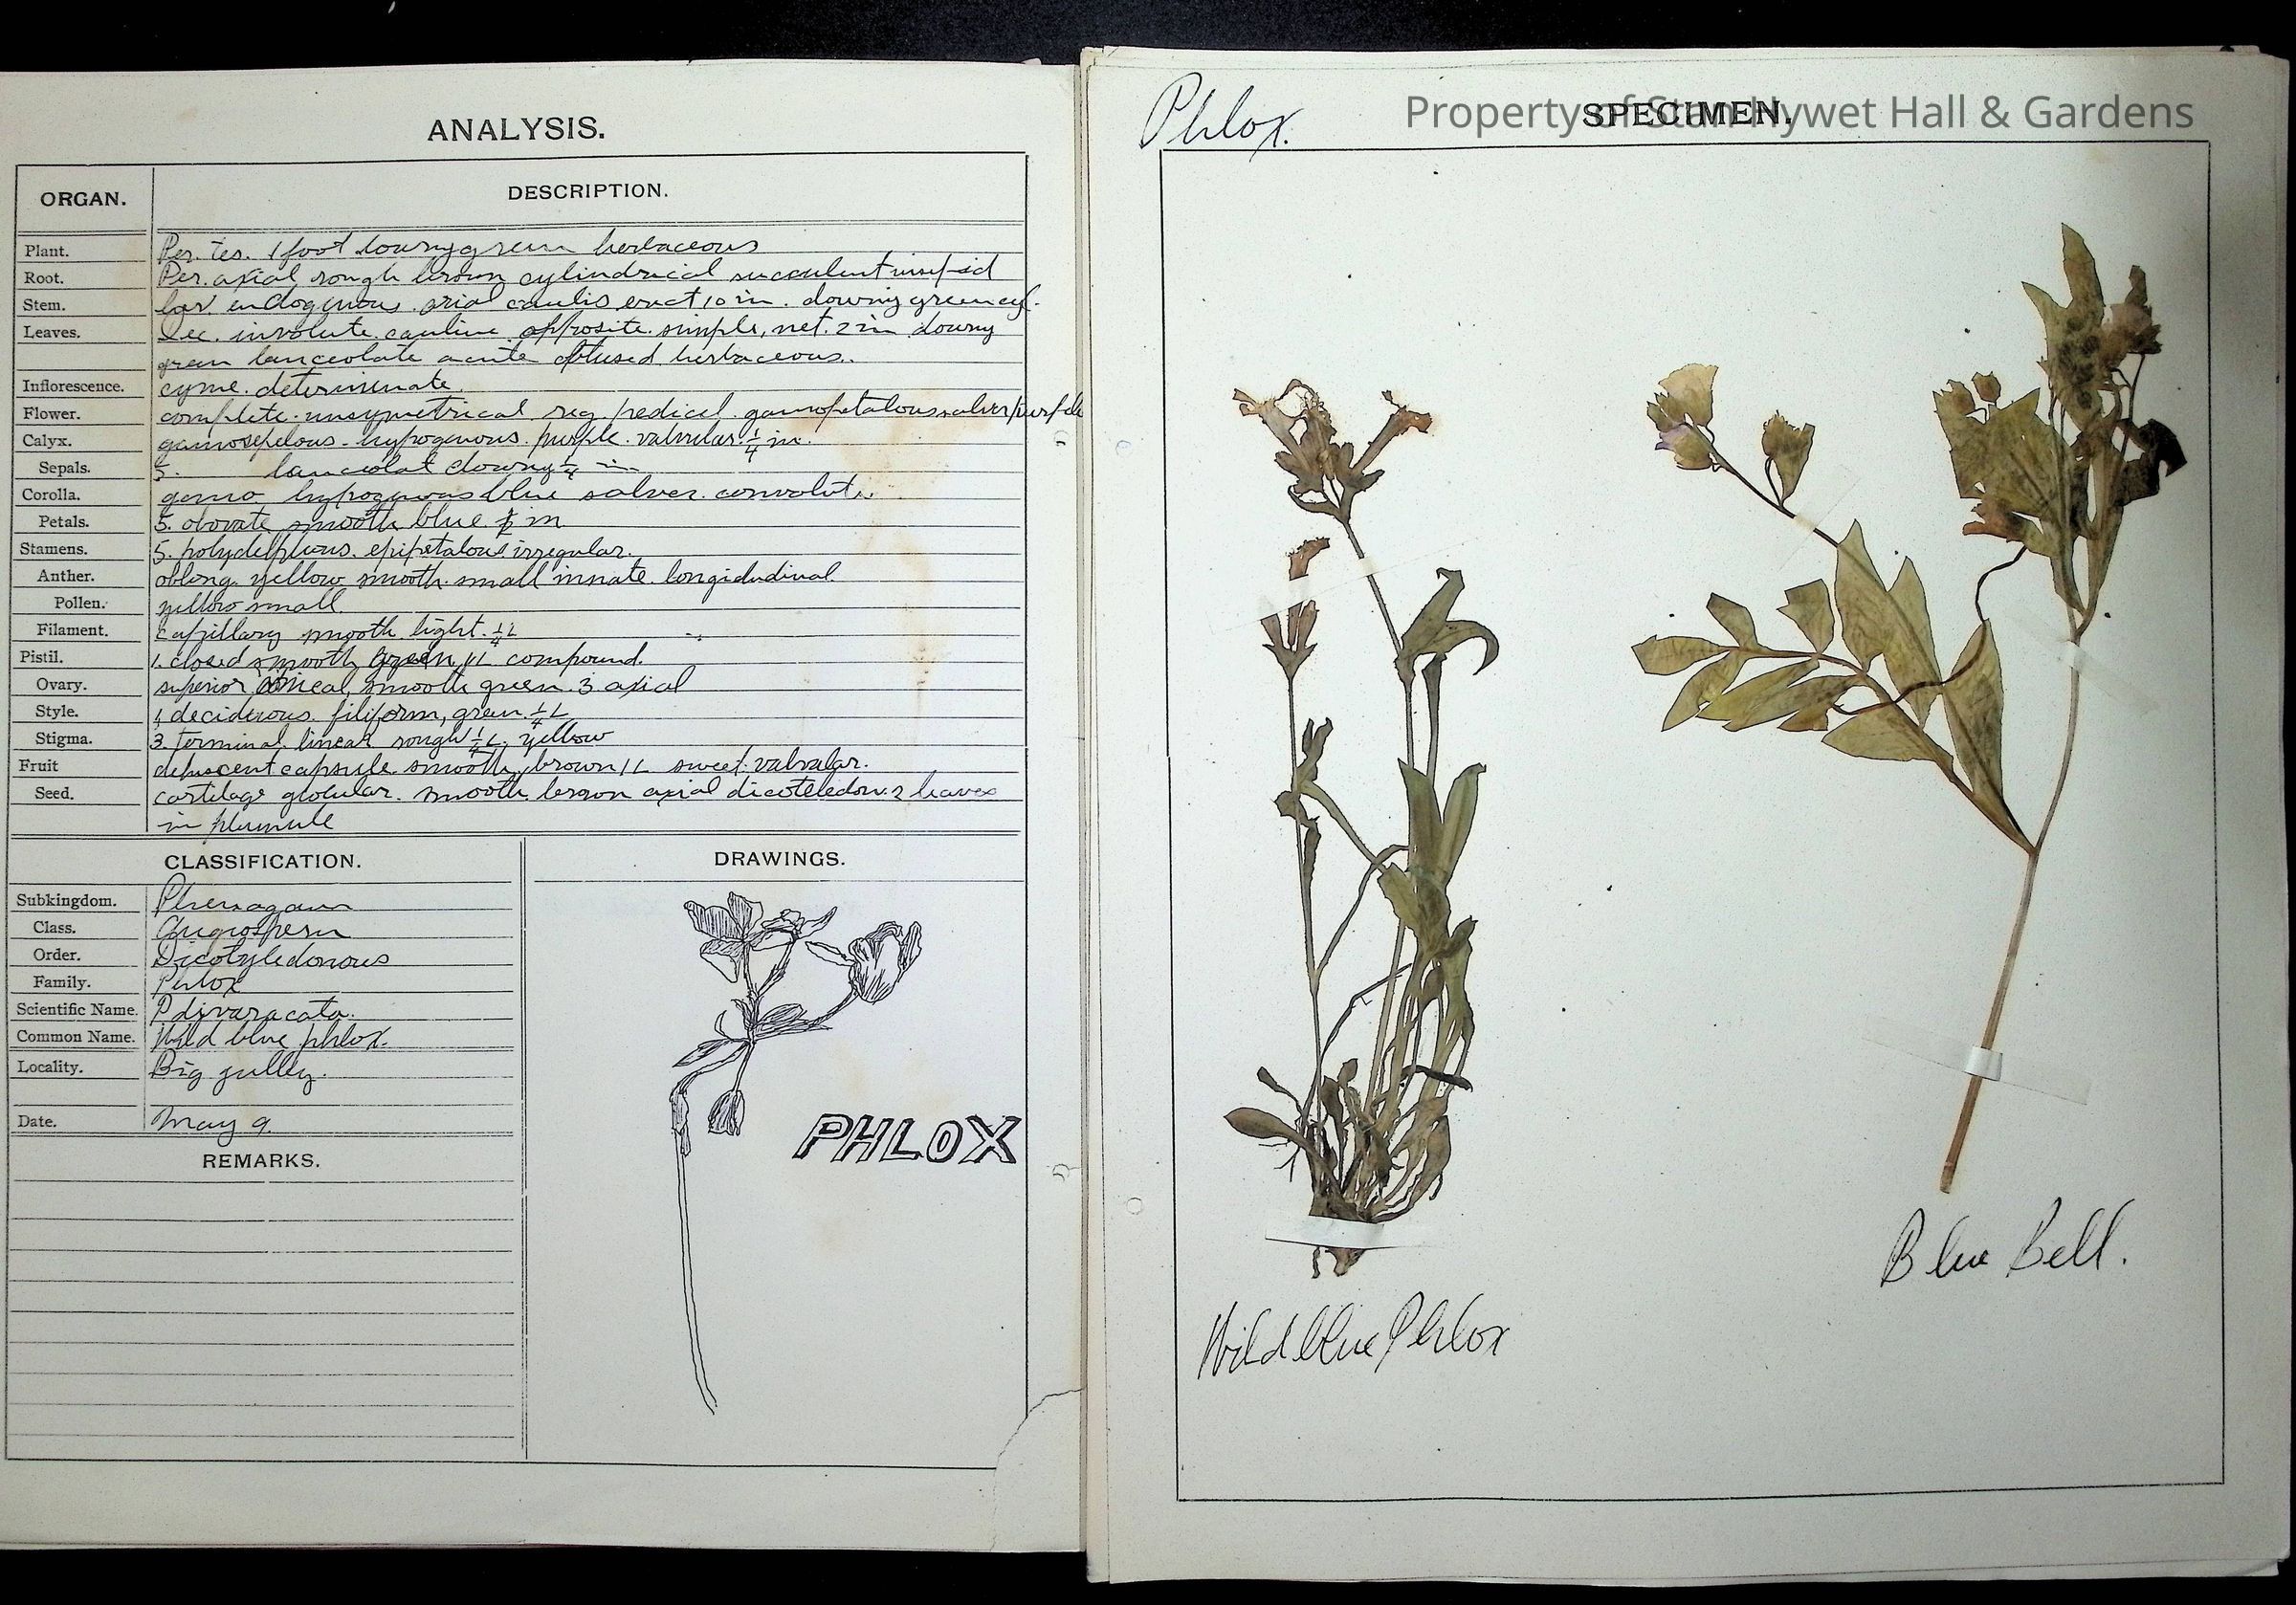 ANALYSIS.
ORGAN. DESCRIPTION.
Plant. Per. Ter. 1 foot downy green herbaceous
Root. Per. axial, rough brown cylindrical succulent insipid
Stem. endogenous. arial caulis erect 10 in. downy green cyl.
Leaves. Dec. involute. cauline. opposite. simple, net. 2 in downy
green lanceolate acute obtused herbaceous.
Inflorescence. cyme. determinate
Flower. complete. unsymetrical reg. pedicel. gamopetalous salver purple
Calyx. gamosepelous - hypogenous. purple. valvular. 1/4 in.
Sepals. 5. lanceolat downy 1/4 in
Corolla. gamo hypogenous blue salver. convolute.
Petals. 5. obovate smooth blue 1/2 in
Stamens. 5. polydelphous. epipetalous irregular.
Anther. oblong. yellow smooth small innate. longidudinal.
Pollen. yellow small.
Filament. capillary smooth light. 1/4 L
Pistil. 1. closed smooth, green, 1 L compound.
Ovary. superior, conical, smooth green. 3 axial
Style. 1, deciderous. filiform, green. 1/4 L
Stigma. 3. terminal. linear rough 1/4 L, yellow
Fruit dehiscent capsule. smooth, brown 1 L sweet. valvular.
Seed. cartilage globular. smooth. brown axial dicoteledon. 2 leaves
in plumule
CLASSIFICATION.
Subkingdom. Phenagam
Class. Angiosperm
Order. Dicotyledonous
Family. Phlox
Scientific Name. P divaracata.
Common Name. Wild blue phlox.
Locality. Big gulley.
Date. May 9.
REMARKS.
DRAWINGS.
PHLOX
Phlox.
SPECIMEN.
Property of Stan Hywet Hall & Gardens
Blue Bell.
Wild blue Phlox